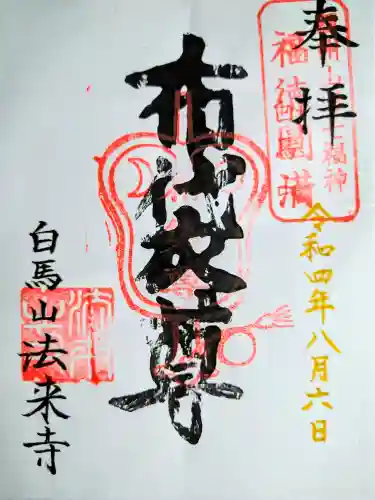 奉拝
福徳圓満
七福神
令和四年八月六日
布袋尊
白馬山法来寺